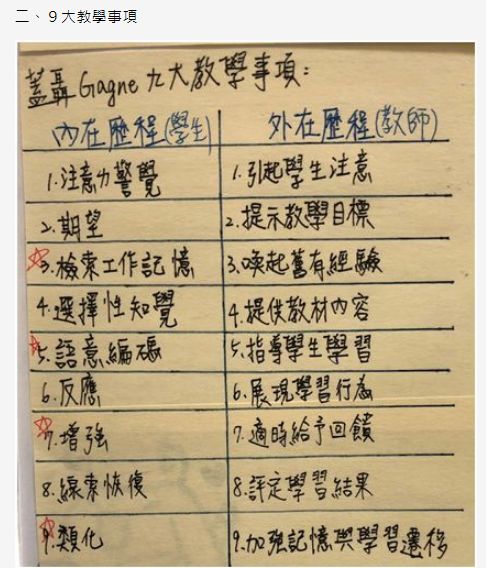 二、９大教學事項
蓋聶Gagne九大教學事項:
內在歷程(學生) 外在歷程(教師)
1.注意力警覺 1.引起學生注意
2.期望 2.提示教學目標
☆3.檢索工作記憶 3.喚起舊有經驗
4.選擇性知覺 4.提供教材內容
☆5.語意編碼 5.指導學生學習
6.反應 6.展現學習行為
☆7.增強 7.適時給予回饋
8.線索恢復 8.評定學習結果
☆9.類化 9.加強記憶與學習遷移